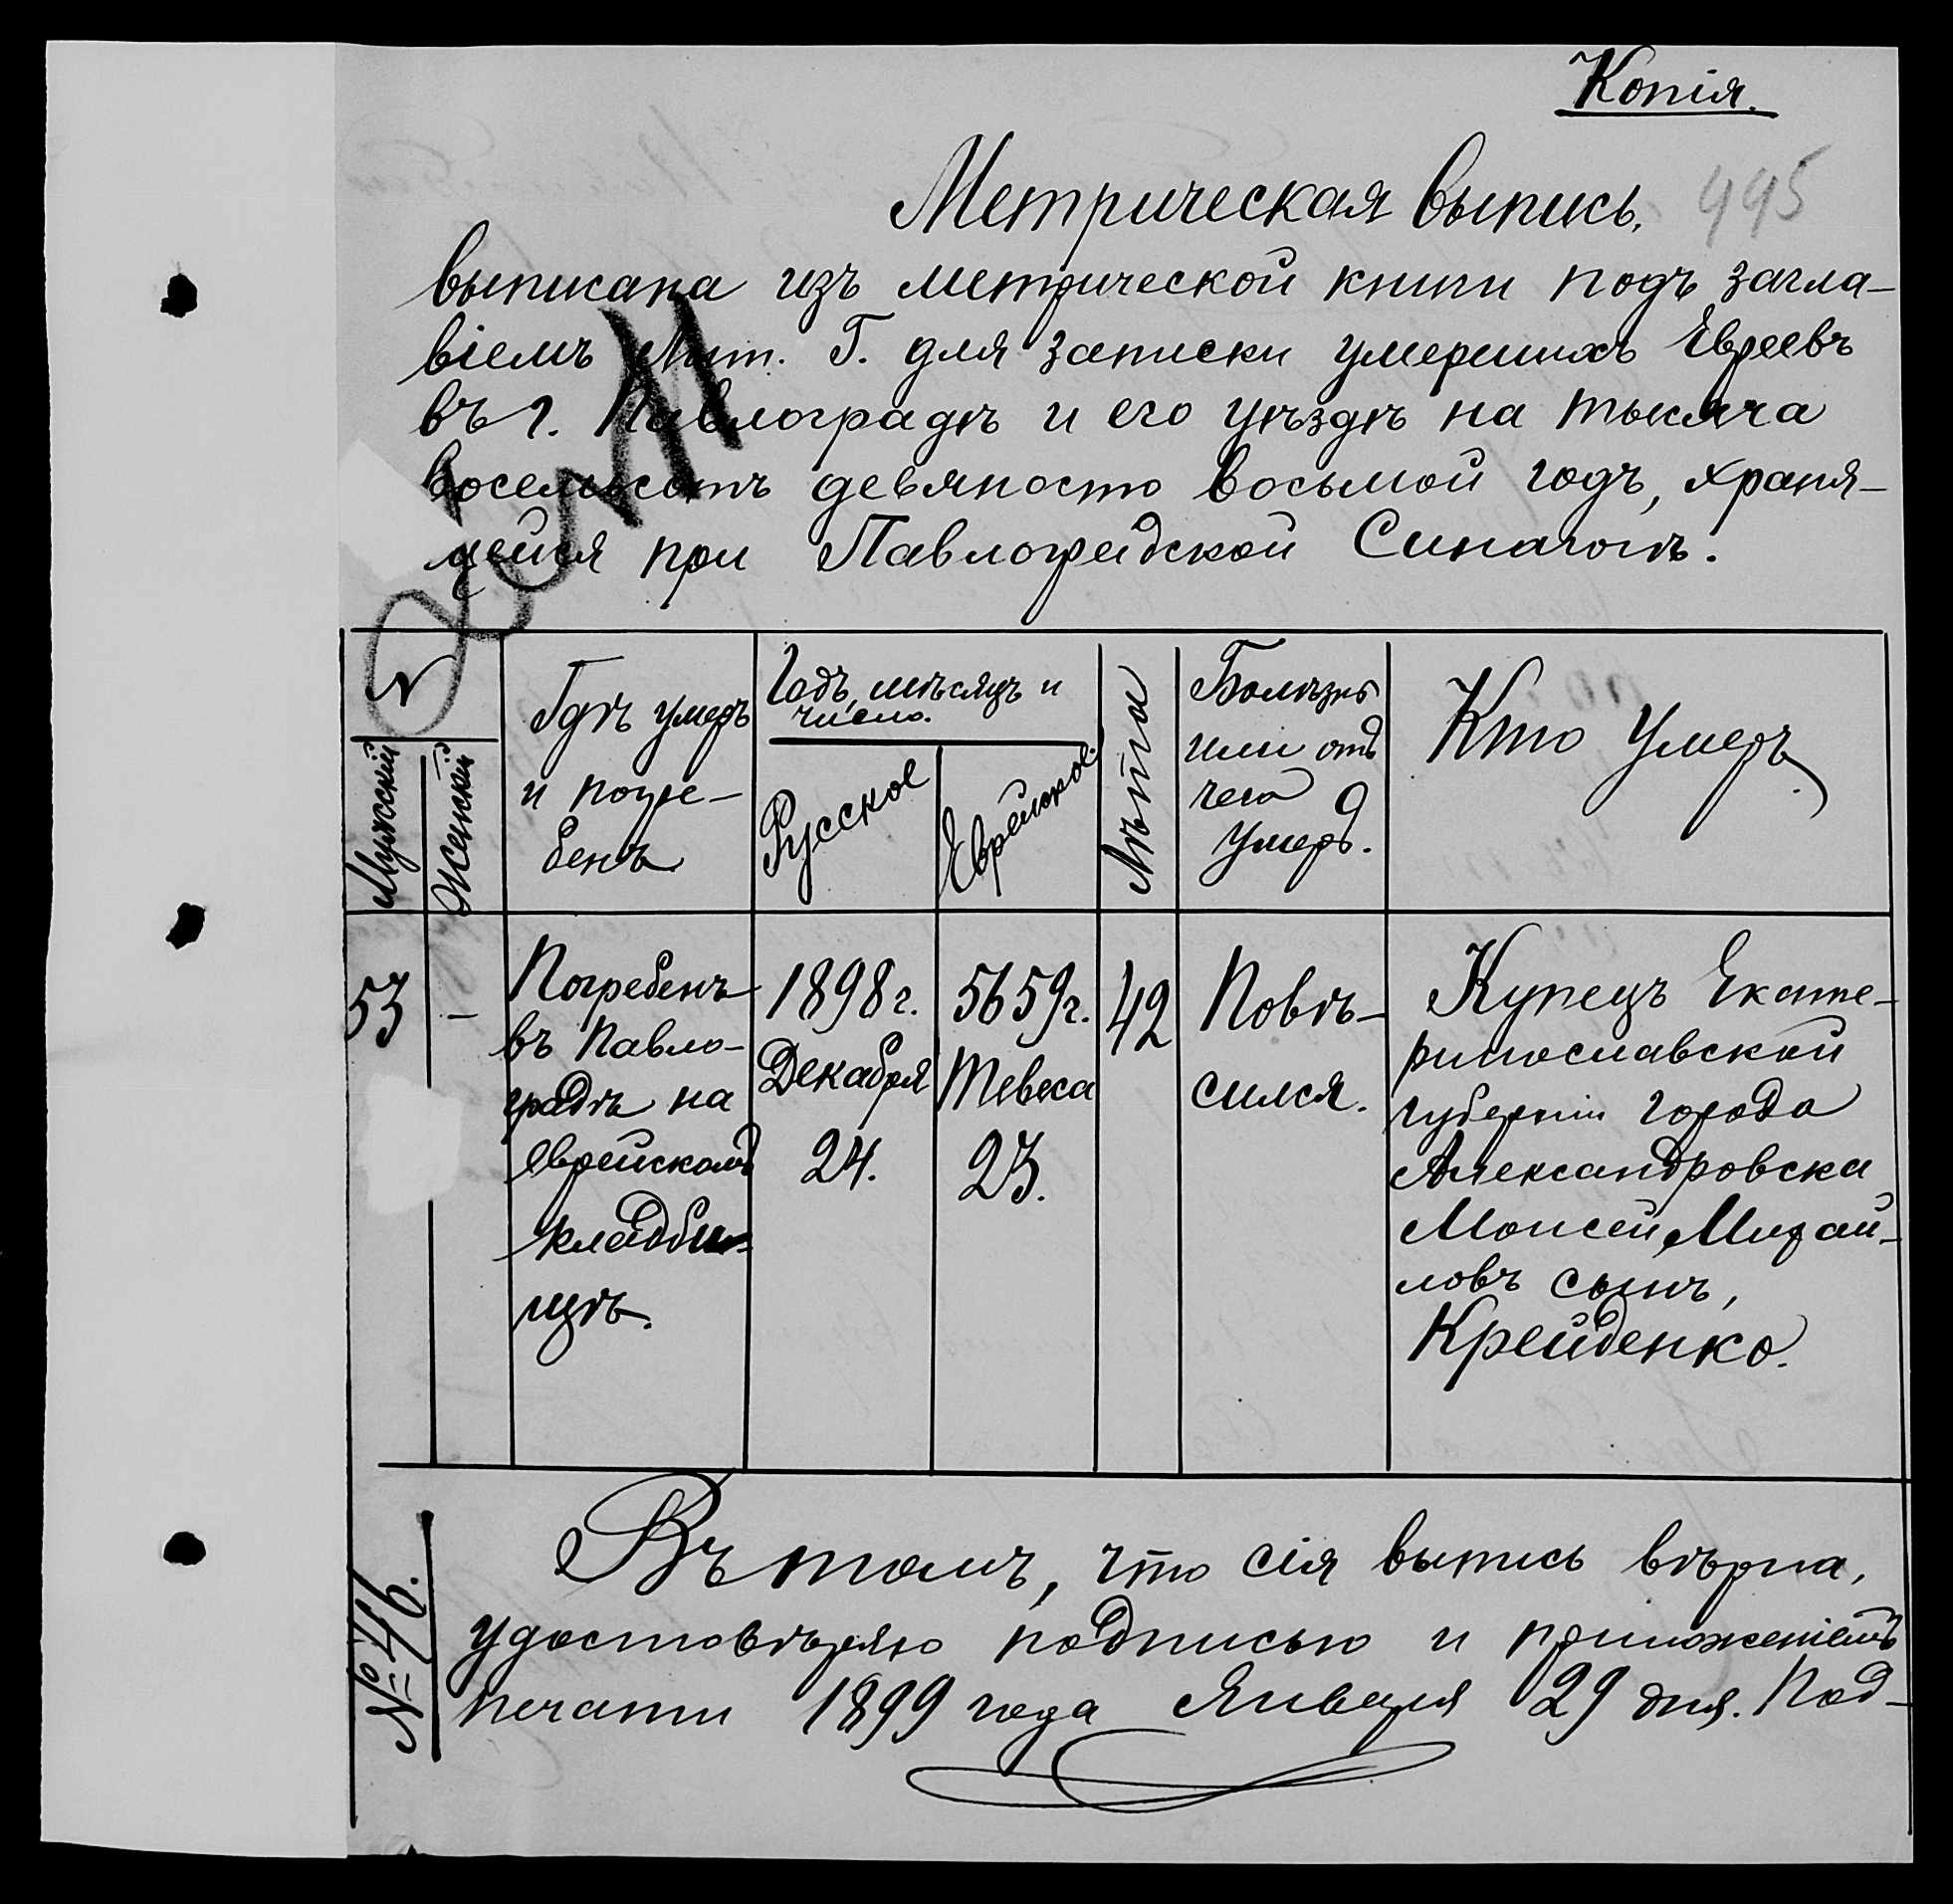 Копія.
495
Метрическая выпись,
выписана изъ метрической книги подъ загла-
віемъ Лит. Г. для записки умершихъ Евреевъ
въ г. Павлоградѣ и его уѣздѣ на тысяча
восемьсотъ девяносто восьмой годъ, храня-
щейся при Павлоградской Синагогѣ.
№
Мужскій
Женскій
Гдѣ умеръ
и погре-
бенъ
Годъ, мѣсяцъ и
число.
Русское
Еврейское.
Лѣта
Болѣзнь
или отъ
чего
умеръ.
Кто умеръ.
53
-
Погребенъ
въ Павло-
градѣ на
еврейскомъ
кладби-
щѣ.
1898 г.
Декабря
24.
5659 г.
Тевеса
23.
42
Повѣ-
сился.
Купецъ Екате-
ринославской
губерніи города
Александровска
Моисей Михай-
ловъ сынъ,
Крейденко.
№ 46.
Въ томъ, что сія выпись вѣрна,
удостовѣряю подписью и приложеніемъ
печати 1899 года Января 29 дня. Под-